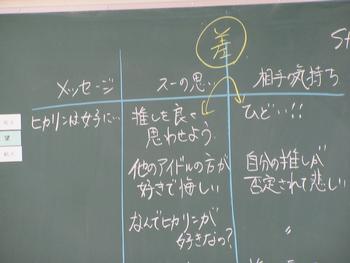 差
メッセージ
スーの思い
相手の気持ち
ヒカリンは女子に…
推しを良く
思わせよう
ひどい!!
他のアイドルの方が
好きで悔しい
自分の推しが
否定されて悲しい
なんでヒカリンが
好きなの?
〃